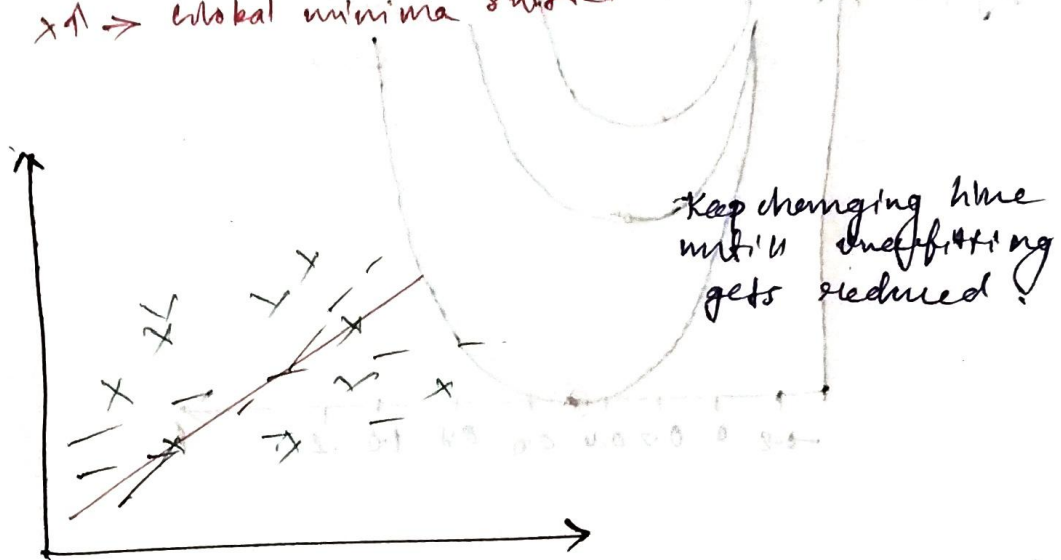 → Global minima
Keep changing line
until overfitting
gets reduced.